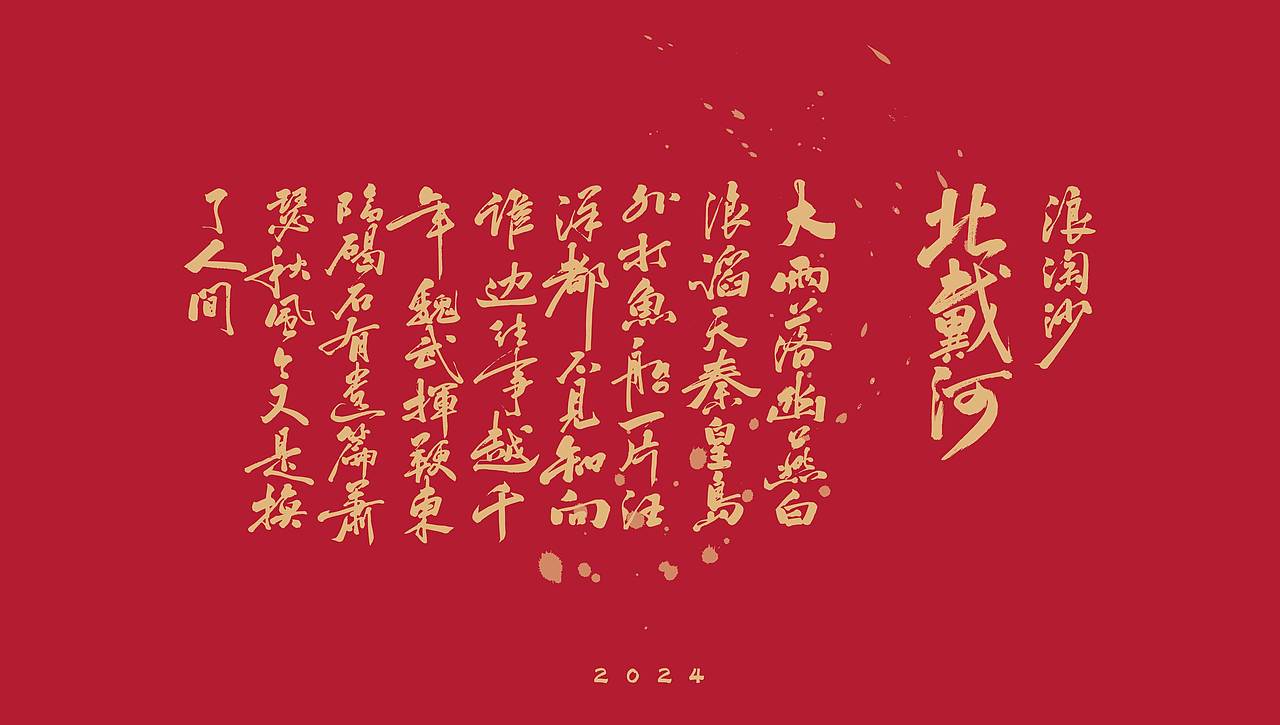 浪淘沙
北戴河
大雨落幽燕白
浪滔天秦皇島
外打魚船一片汪
洋都不見知向
誰边往事越千
年魏武揮鞭東
临碣石有遺篇蕭
瑟秋風今又是換
了人間
2024